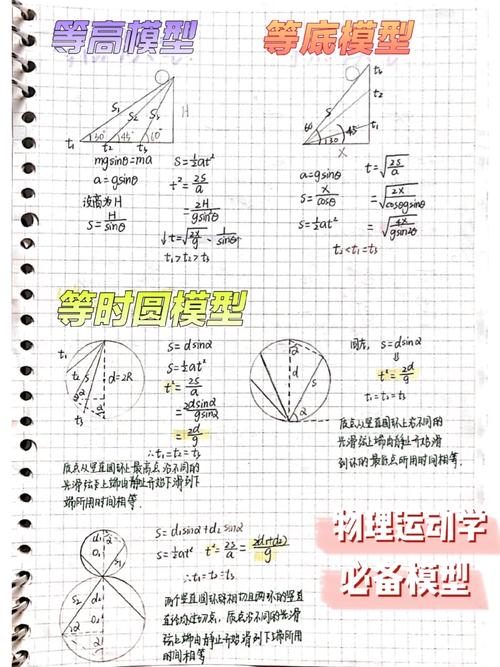 等高模型
等底模型
S₁ S₂ S₃ H
t₁ 30° t₂ 45° t₃ 60°
mgsinθ=ma
a=gsinθ
设高为H
S=H/sinθ
S=½at²
t²=2S/a
=2H/gsin²θ
t=√(2H/g)·1/sinθ
t₁>t₂>t₃
S t₃ t₂ t₁
60° 45° 30°
X
a=gsinθ
S=X/cosθ
S=½at²
t=√(2S/a)
=√(2X/cosθgsinθ)
=√(4X/gsin2θ)
t₂<t₁=t₃
等时圆模型
t₁ t₂ S t₃ d=2R α
S=dsinα
S=½at²
t²=2S/a
=2dsinα/gsinα
=2d/g
∴t₁=t₂=t₃
质点从竖直圆环上最高点沿不同的
光滑弦上端由静止开始滑到下
端所用时间相等.
α d S α
同左,
S=dsinα
t²=2d/g
t₁=t₂=t₃
质点从竖直圆环上沿不同的
光滑弦上端由静止开始滑
到环的最低点所用时间相等.
d₁ O₁ S₁ S₂ d₂ O₂ α
S=d₁sinα+d₂sinα
S=½at² t²=2S/a=2(d₁+d₂)/g
∴t₁=t₂=t₃
两个竖直圆环相切且两环的竖直
直径均过切点,质点沿不同的光滑
弦上端由静止开始滑到下端所用
时间相等.
物理运动学
必备模型